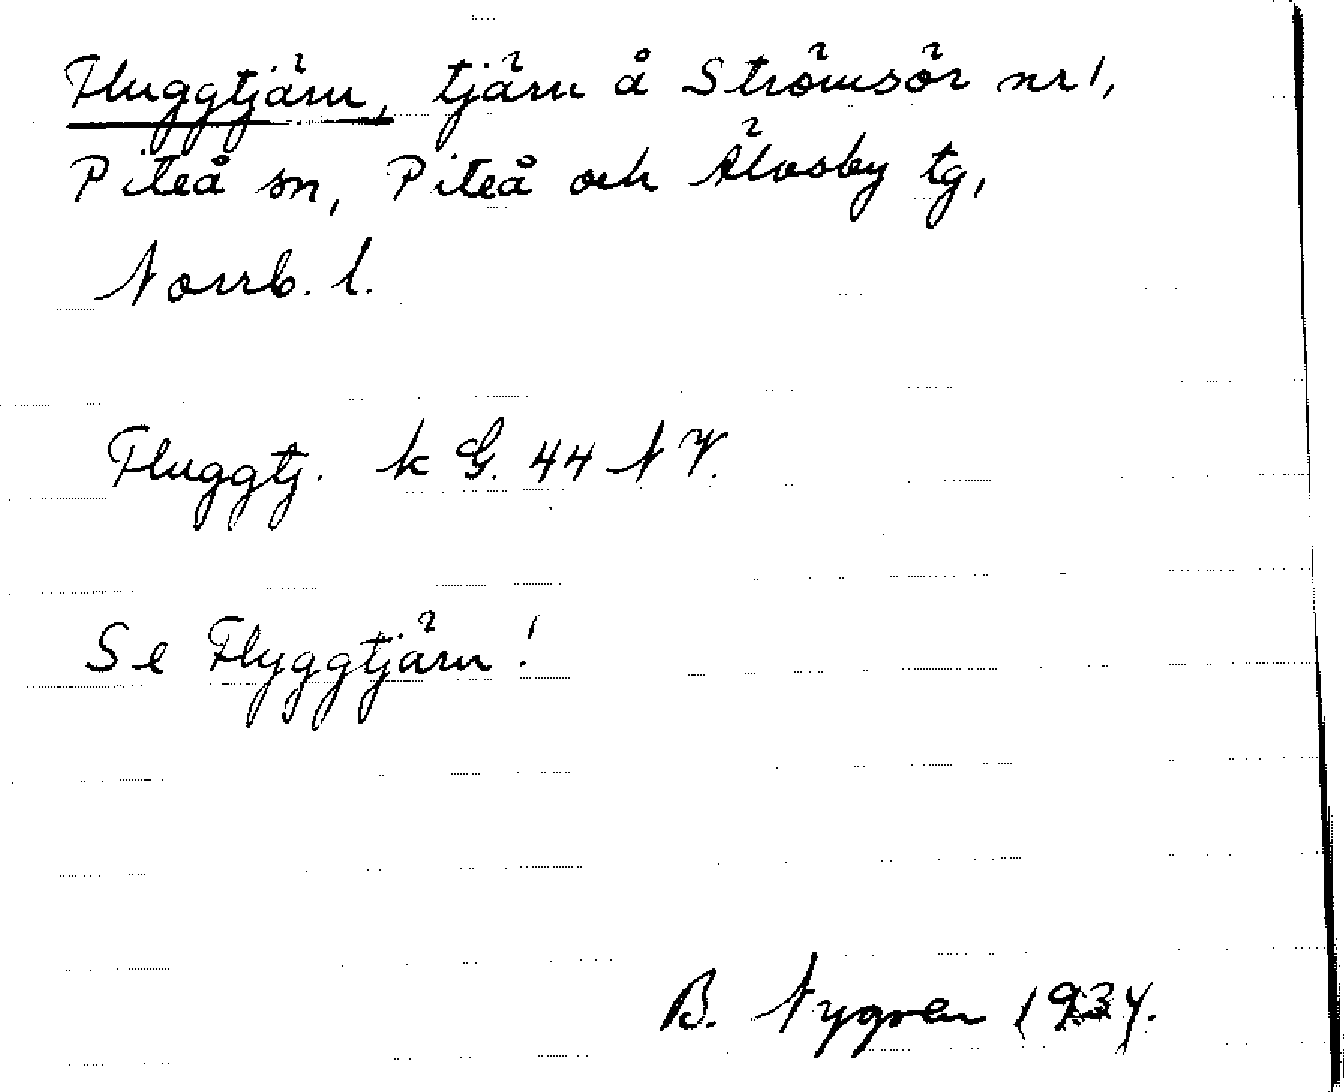 Fluggtjärn, tjärn å Strömsör nr 1,
Piteå sn, Piteå och Älvsby tg,
Norrb. l.
Fluggtj. k G. 44 NV.
Se Flyggtjärn!
B. Nygren 1937.